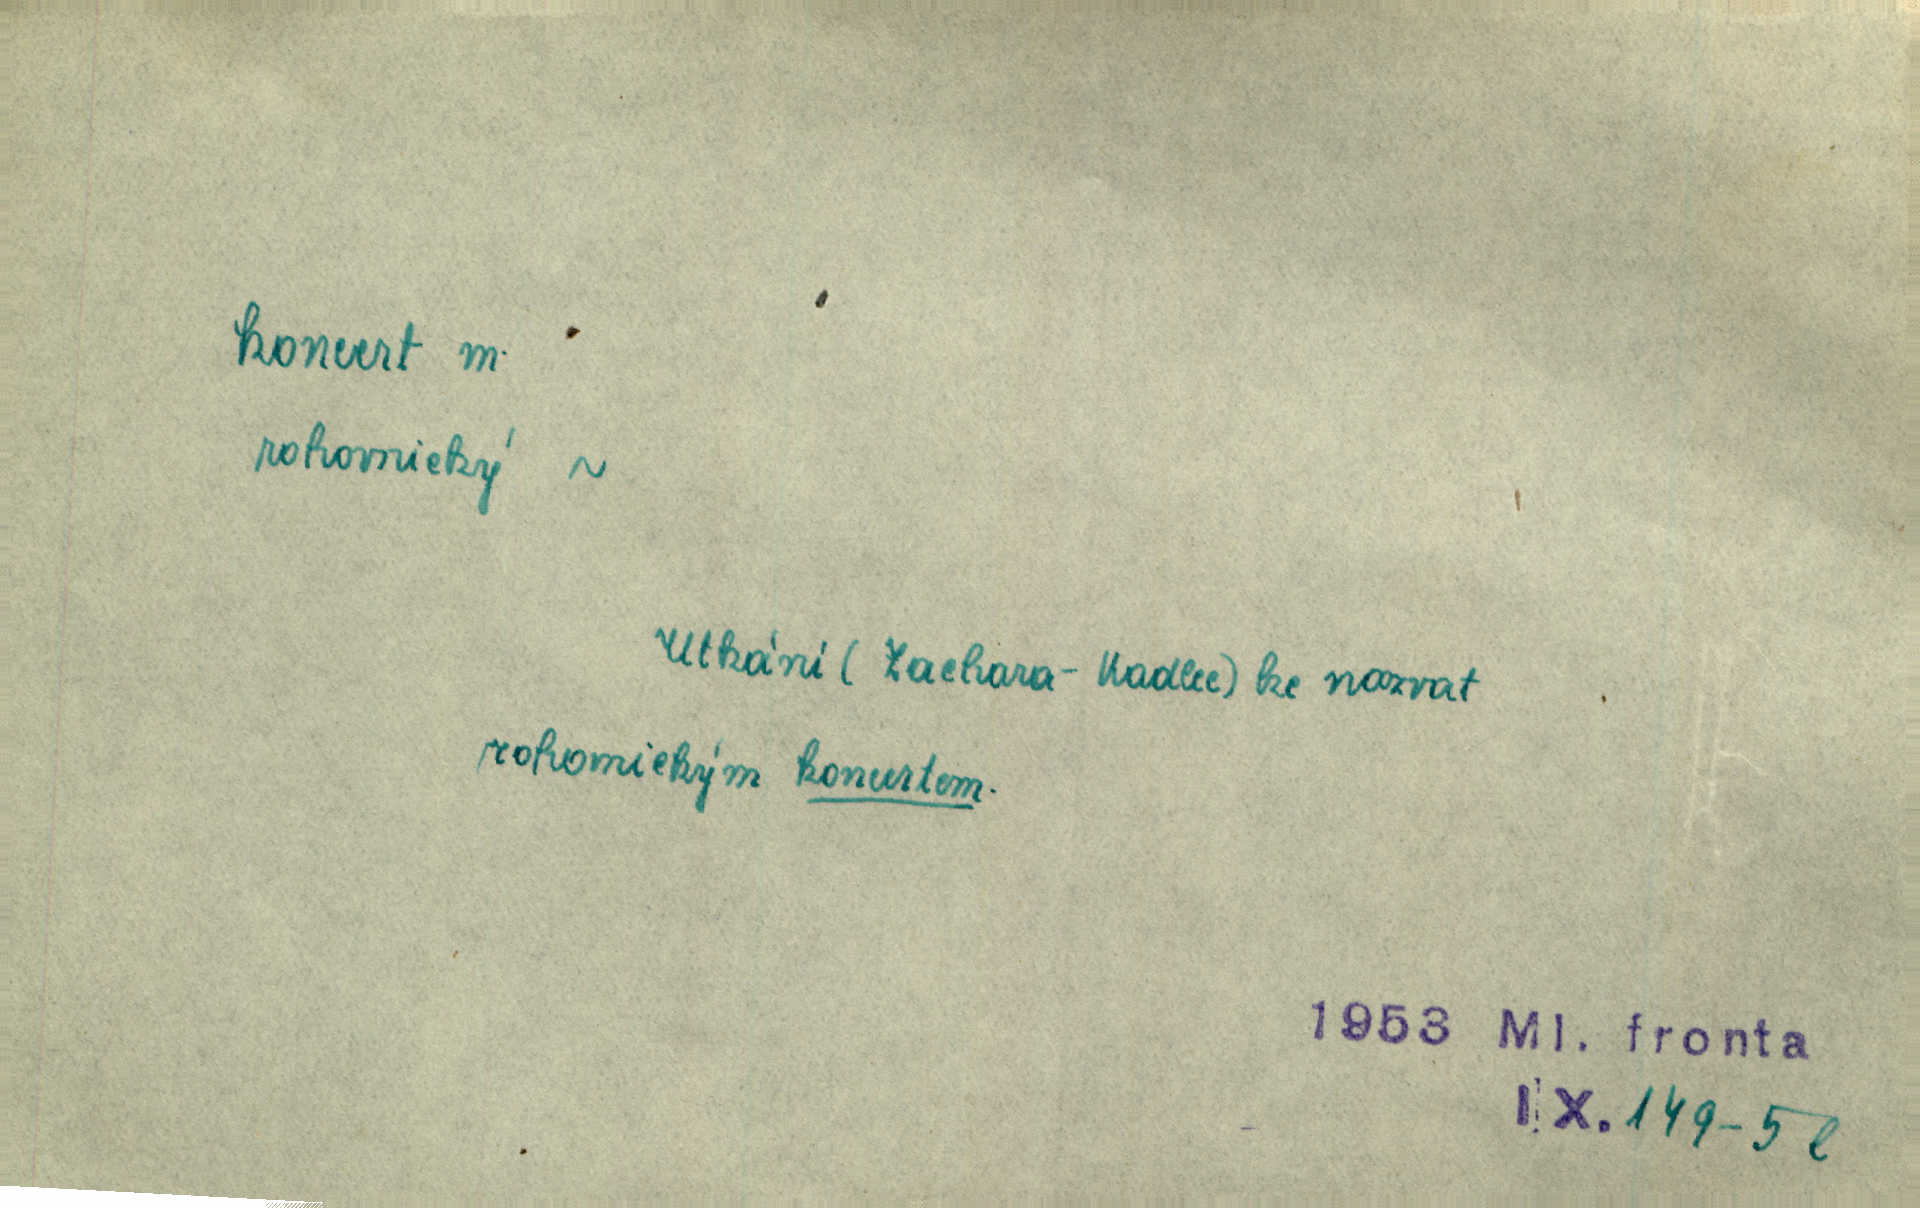 koncert m.
rohovnický ~
Utkání (Zachara-Kadlec) lze nazvat
rohovnickým koncertem.
1953 Ml. fronta
IX. 149-5 l